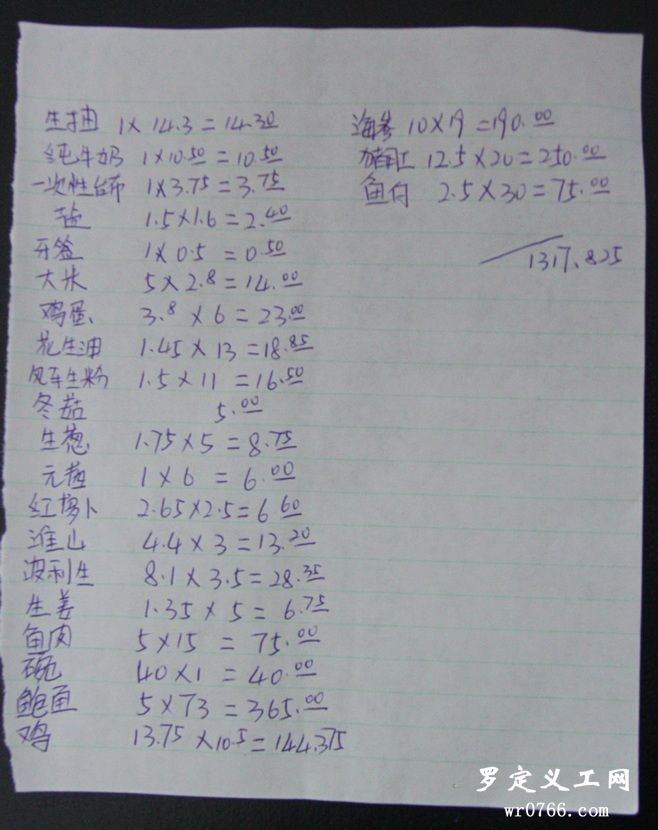 生抽 1×14.3=14.30
纯牛奶 1×10.50=10.50
一次性台布 1×3.75=3.75
盐 1.5×1.6=2.40
牙签 1×0.5=0.50
大米 5×2.8=14.00
鸡蛋 3.8×6=23.00
花生油 1.45×13=18.85
风车生粉 1.5×11=16.50
冬菇 5.00
生葱 1.75×5=8.75
元茜 1×6=6.00
红萝卜 2.65×2.5=6.60
淮山 4.4×3=13.20
波利生 8.1×3.5=28.35
生姜 1.35×5=6.75
鱼肉 5×15=75.00
碗 40×1=40.00
鲍鱼 5×73=365.00
鸡 13.75×10.5=144.375
海参 10×19=190.00
12.5×20=250.00
鱼付 2.5×30=75.00
1317.825
罗定义工网
wr0766.com